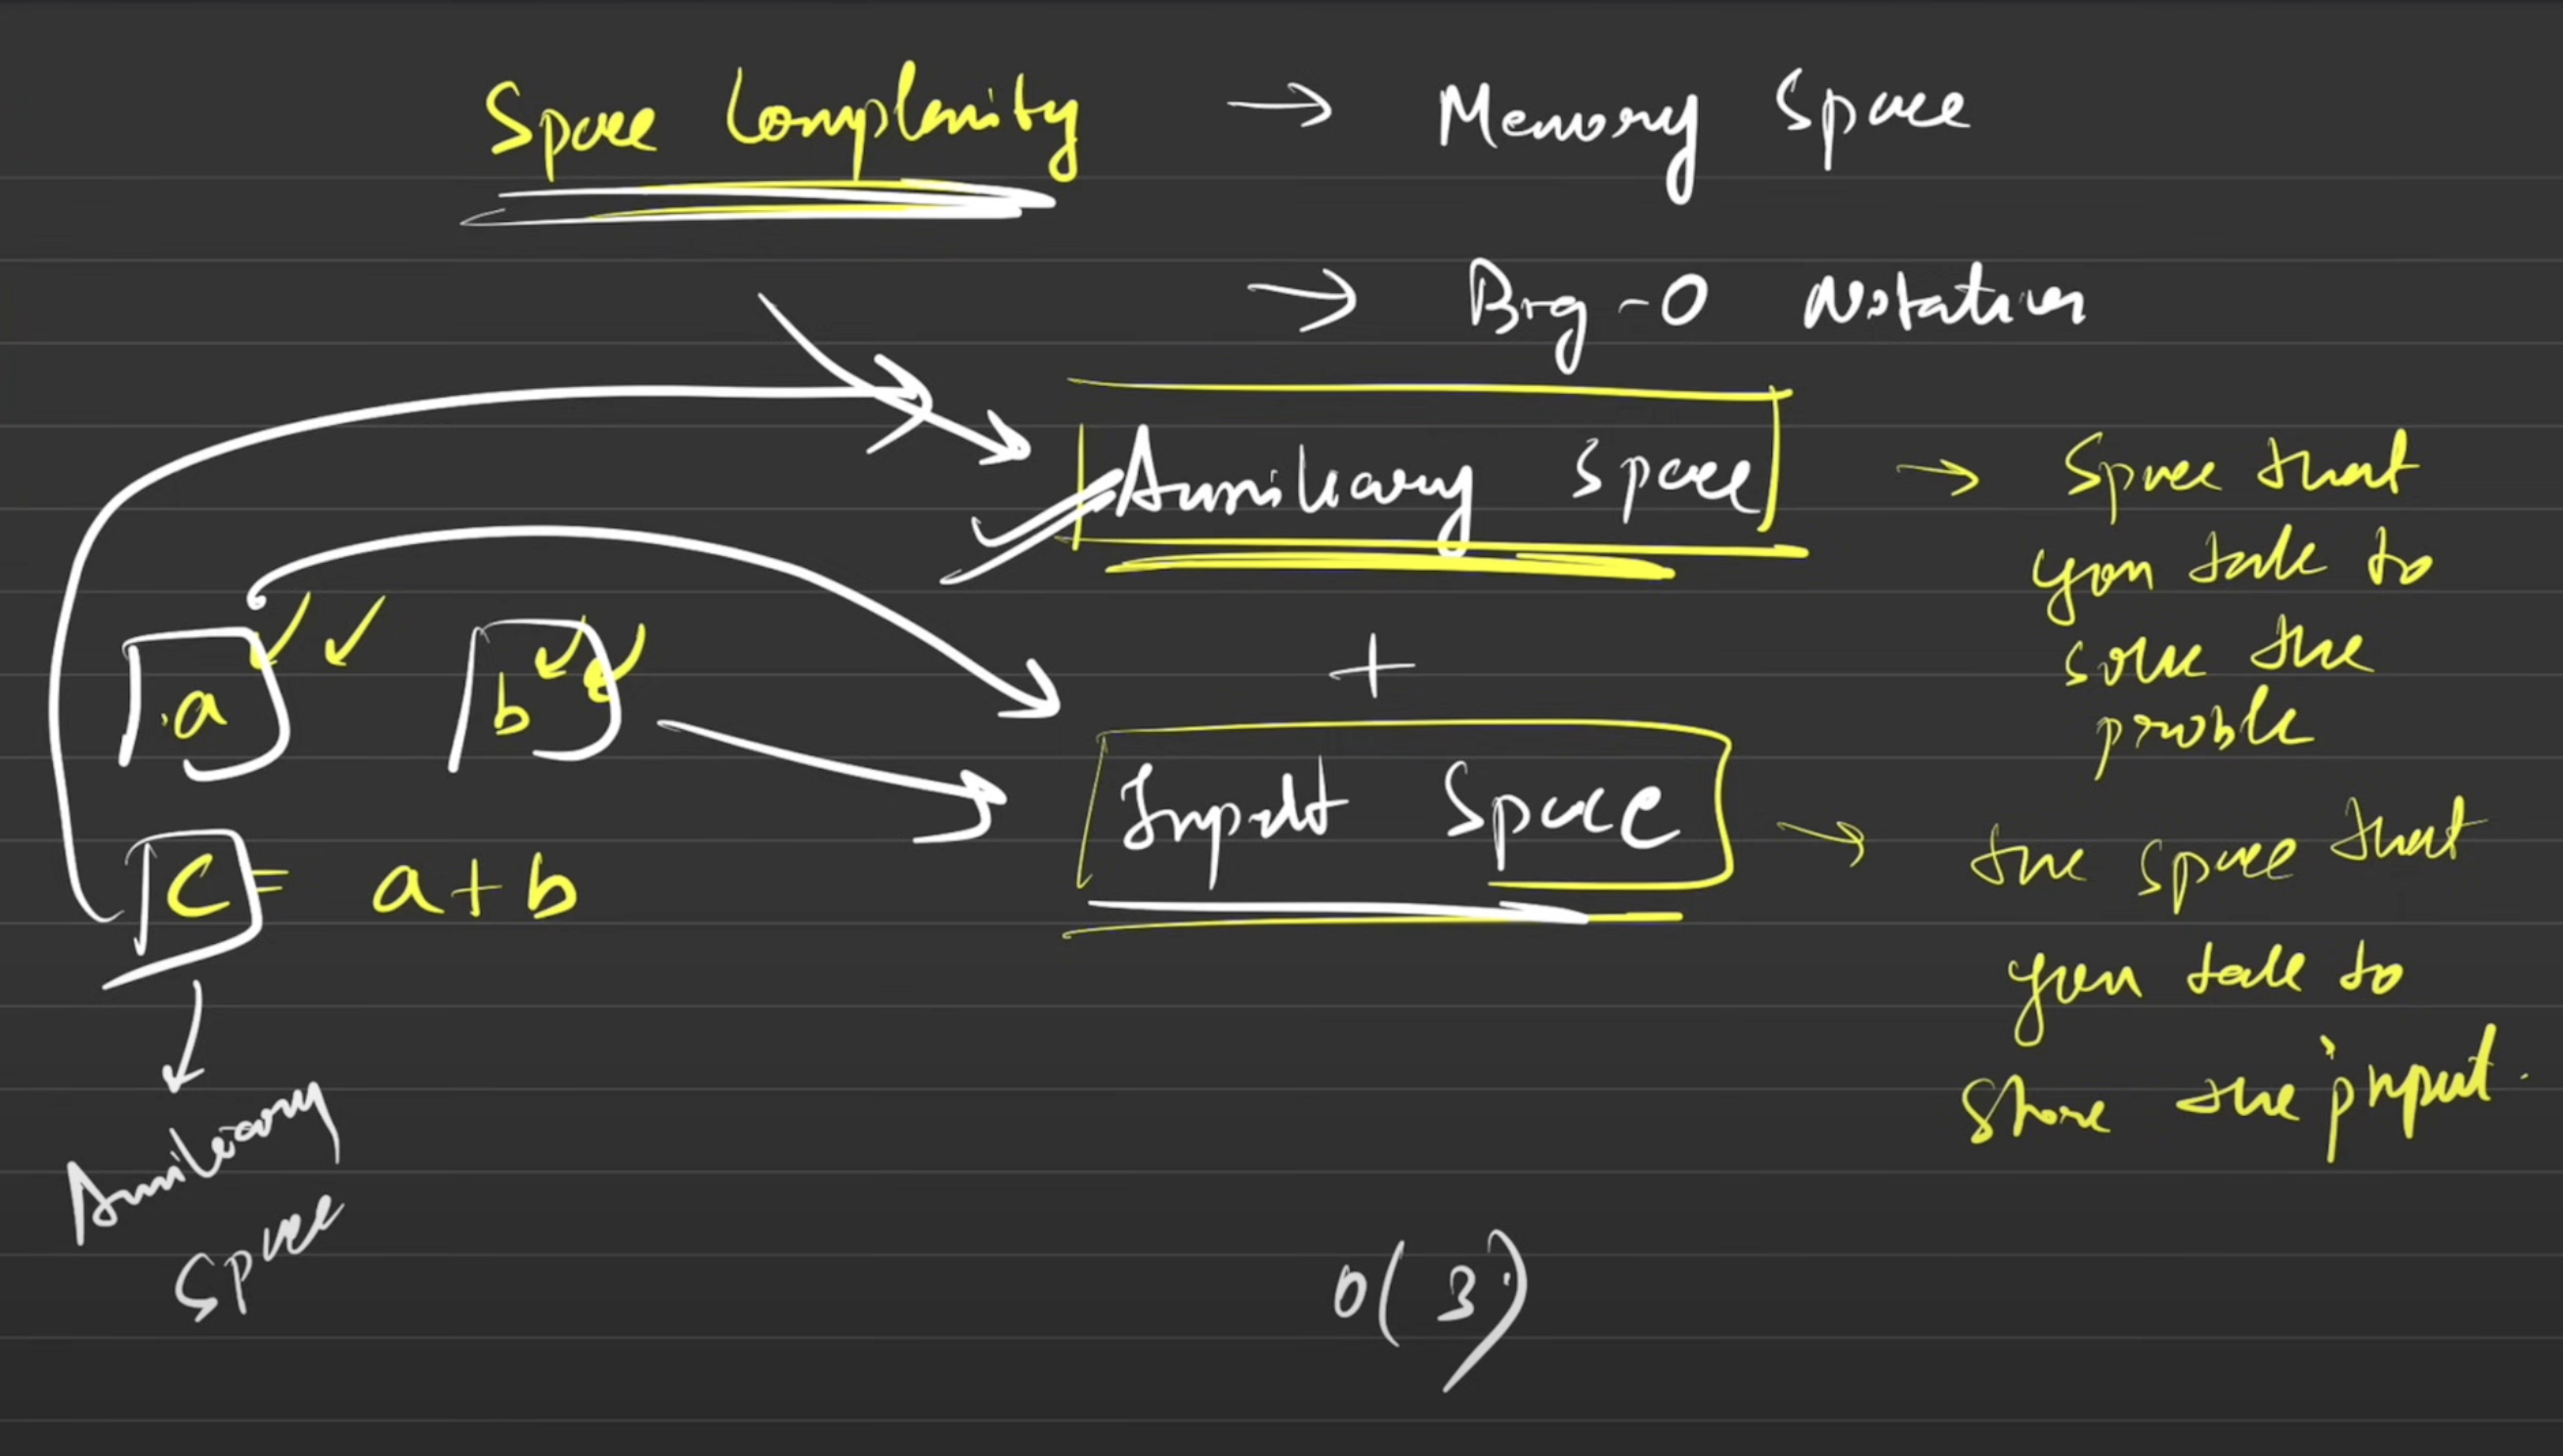 Space Complexity → Memory Space
→ Big-O Notation
Auxiliary Space → Space that
you take to
solve the
proble
+
a b
Input Space → the space that
you take to
store the input.
c = a+b
Auxiliary
Space
O(3)